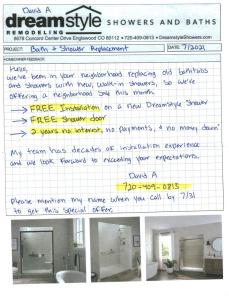 David A
dreamstyle
REMODELING
SHOWERS AND BATHS
8678 Concord Center Drive Englewood CO 80112 • 720-409-0813 • DreamstyleShowers.com
PROJECT: Bath & Shower Replacement
DATE: 7/2021
HOMEOWNER FEEDBACK:
Hello,
We've been in your neighborhood replacing old bathtubs
and showers with new, walk-in showers, so we're
offering a neighborhood sale this month.
→ FREE Installation on a new Dreamstyle Shower
→ FREE Shower door
→ 2 years no interest, no payments, & no money down
My team has decades of installation experience
and we look forward to exceeding your expectations.
David A
720-409-0813
Please mention my name when you call by 7/31
to get this special offer.